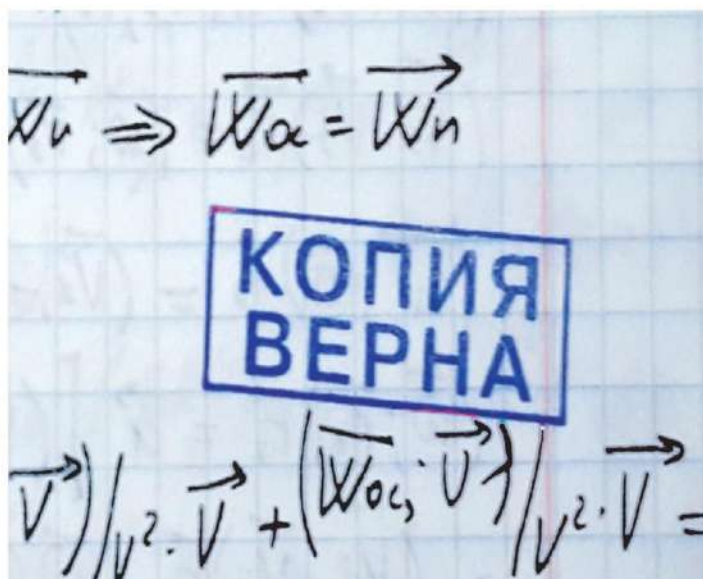 Wn ⇒ Wос = Wn
КОПИЯ
ВЕРНА
V)/V²·V + (Wос; V)/V²·V =